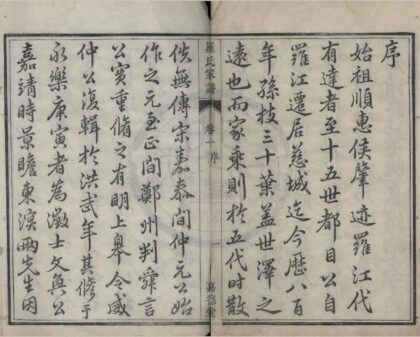 序
始祖順惠侯肇迹羅江代
有達者至十五世都目公自
羅江遷居慈城迄今歷八百
年孫枝三十葉蓋世澤之
遠也而家乘則於五代時散
羅氏家譜 卷一 序
嘉德堂
佚無傳宋嘉泰間仲元公始
作之元至正間鄭州判舜言
公實重脩之有明上舉令威
仲公復輯於洪武年其修于
永樂庚寅者為徵士文奐公
嘉靖時景瞻東溟兩先生因